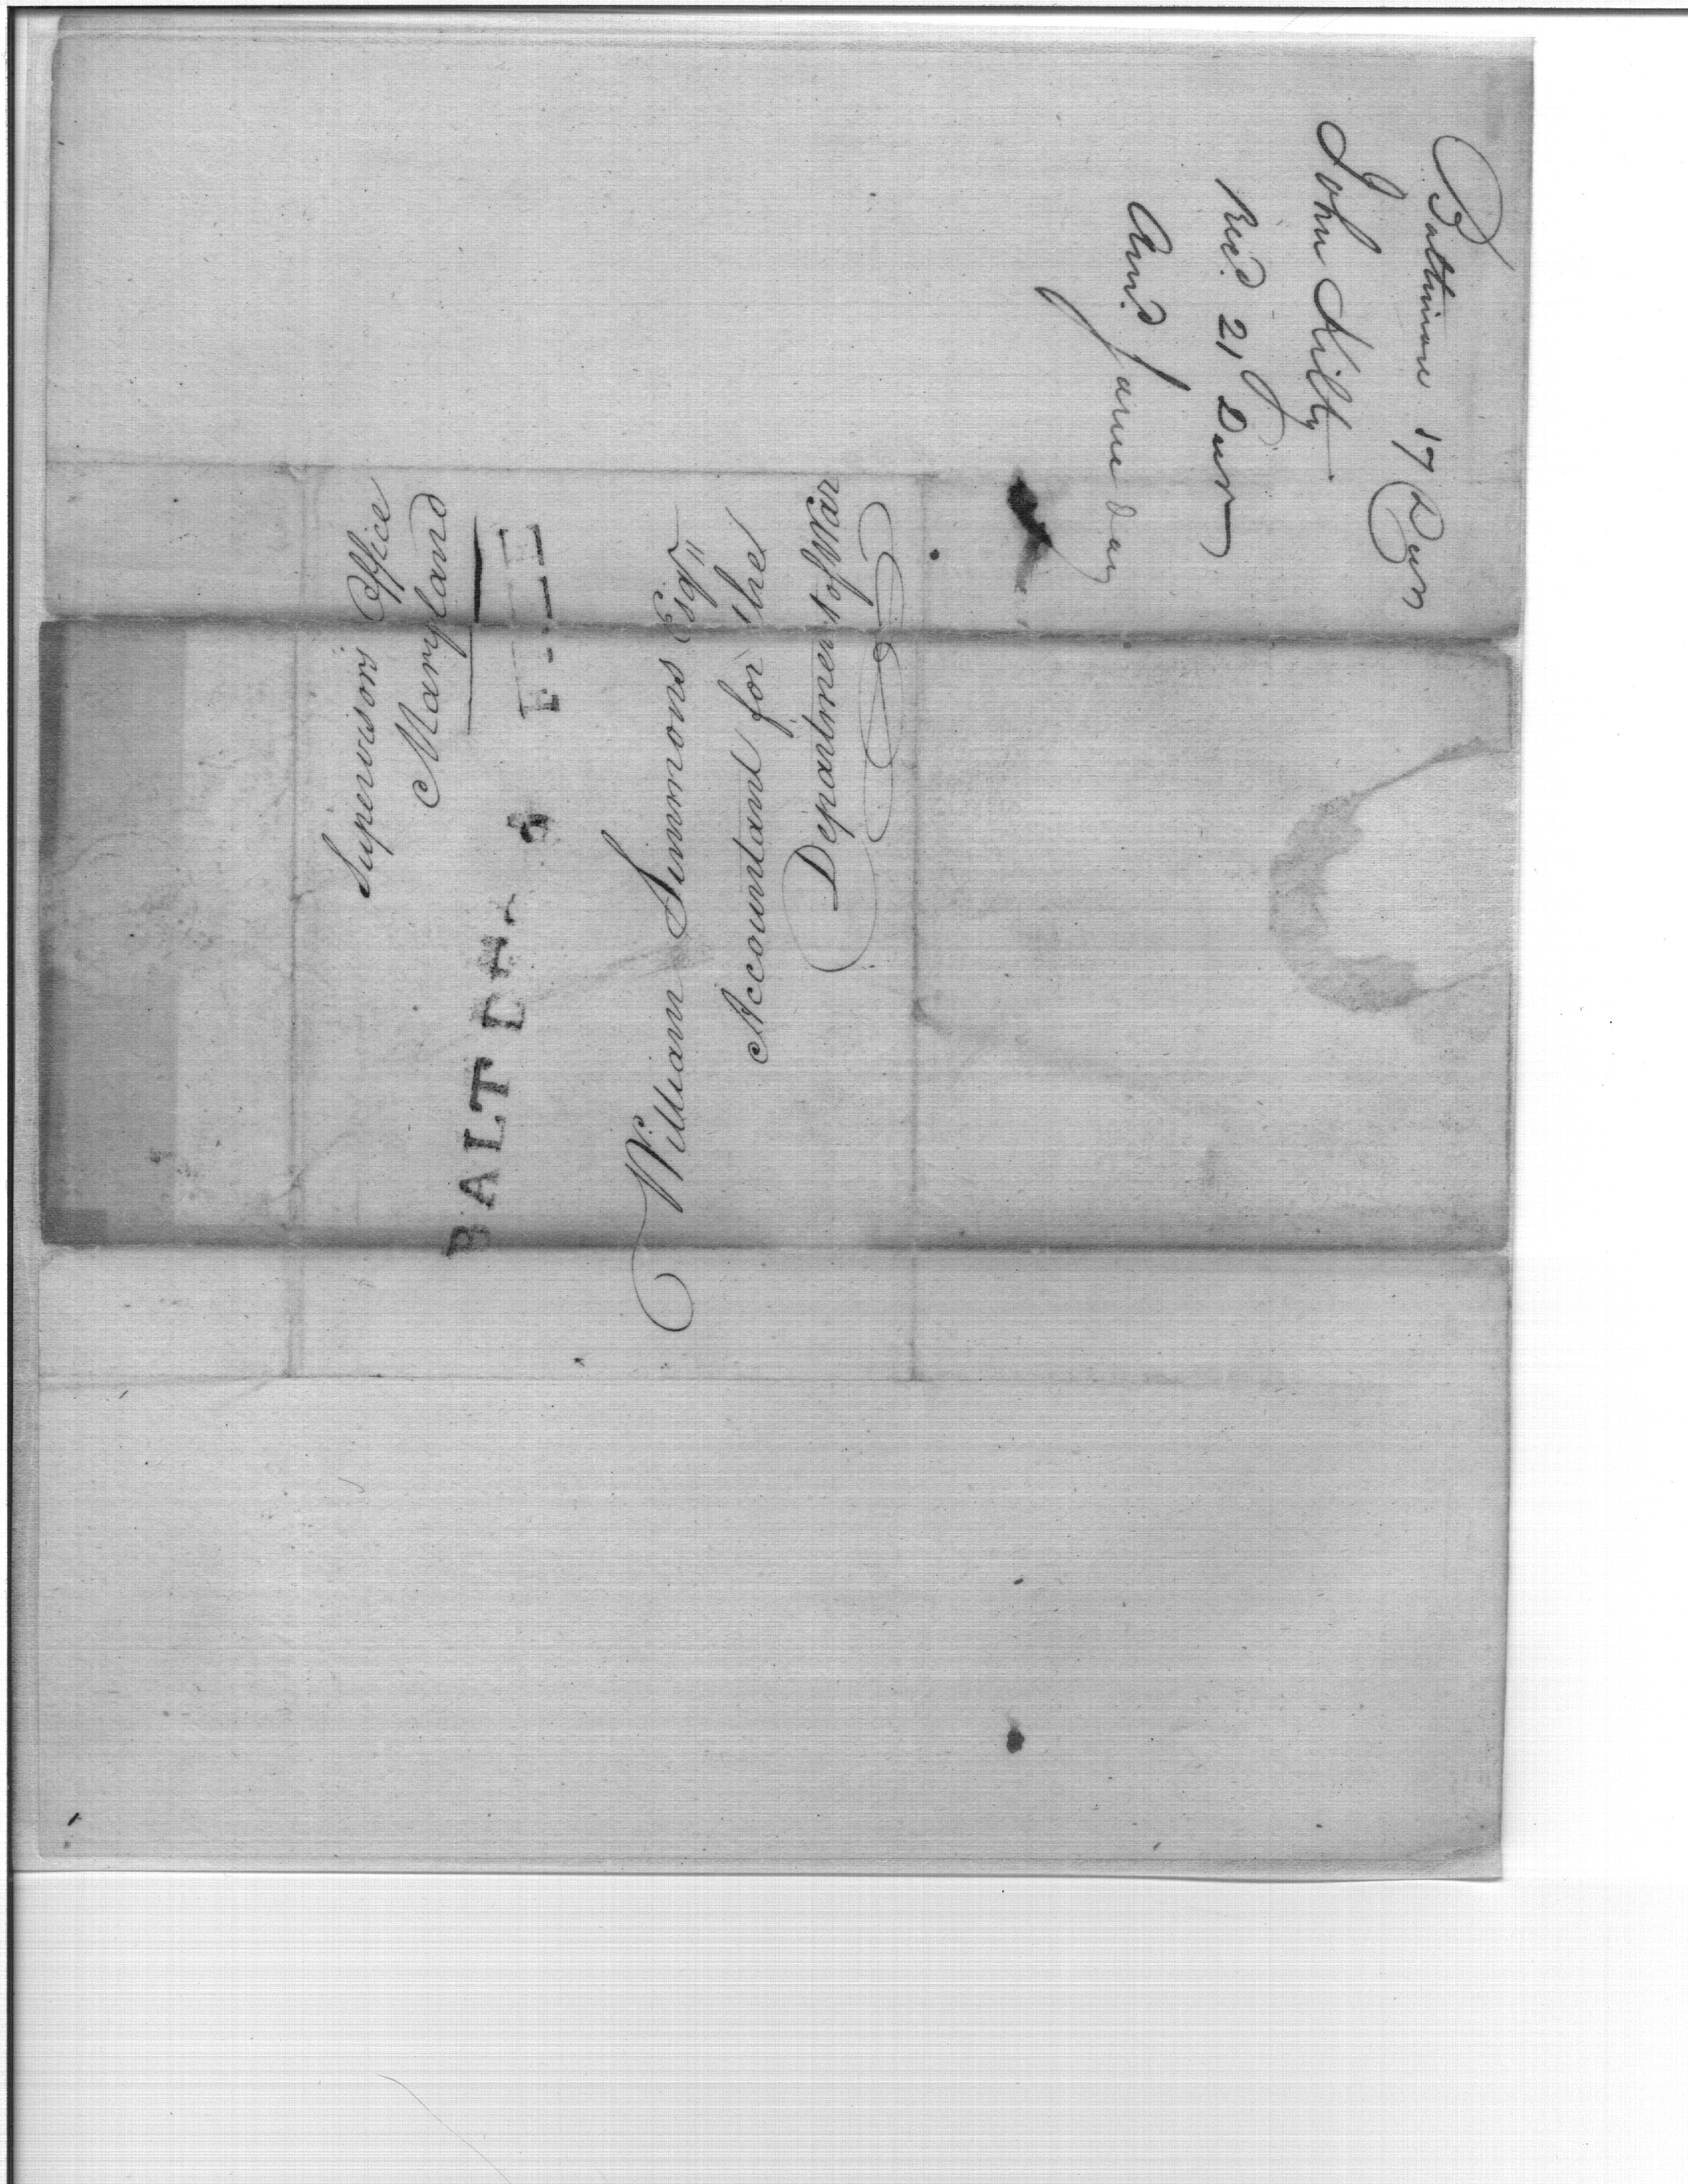 Supervisors Office
Maryland
BALT
William Simmons Esqr
Accountant for the
Department of War
Baltimore 17 Decr
John Kilty
Recd. 21 Decr
Ansd. same day